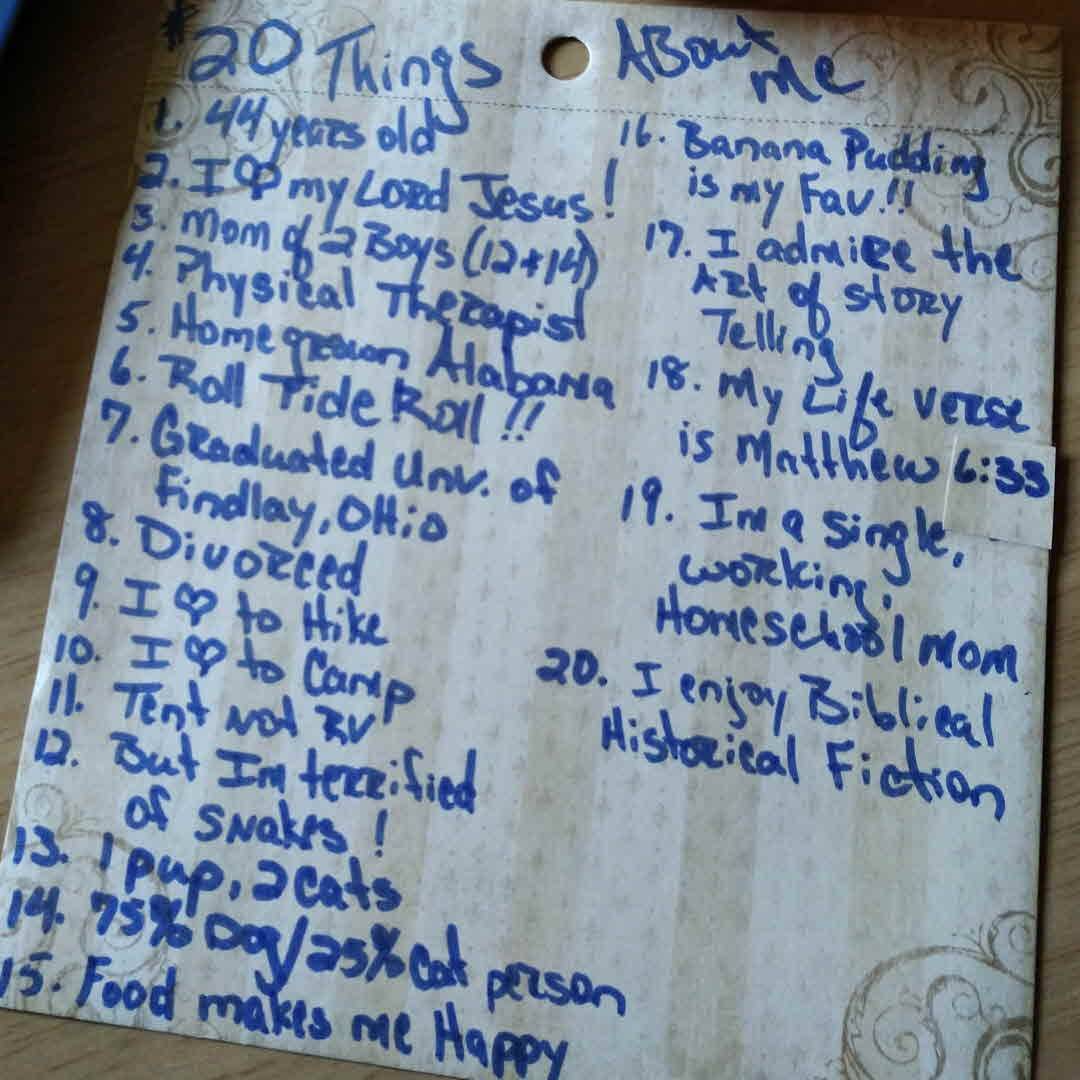 *20 Things About me
1. 44 years old
2. I ♡ my Lord Jesus!
3. Mom of 2 Boys (12+14)
4. Physical Therapist
5. Homegrown Alabama
6. Roll Tide Roll!!
7. Graduated Univ. of
Findlay, OHio
8. Divorced
9. I ♡ to Hike
10. I ♡ to Camp
11. Tent not RV
12. But Im terrified
of snakes!
13. 1 pup, 2 cats
14. 75% Dog/25% Cat person
15. Food makes me Happy
16. Banana Pudding
is my Fav.!!
17. I admire the
Art of story
Telling
18. My Life verse
is Matthew 6:33
19. Im a single,
working,
Homeschool mom
20. I enjoy Biblical
Historical Fiction